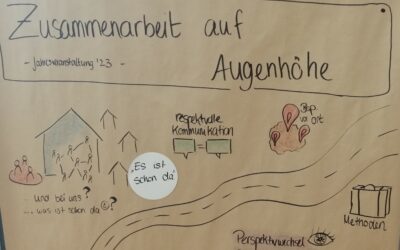 Zusammenarbeit auf
- Jahresveranstaltung '23 -
Augenhöhe
respektvolle
Kommunikation
Bsp.
vor
Ort
"Es ist
schon da"
... und bei uns?
... was ist schon da ?
Methoden
Perspektivwechsel